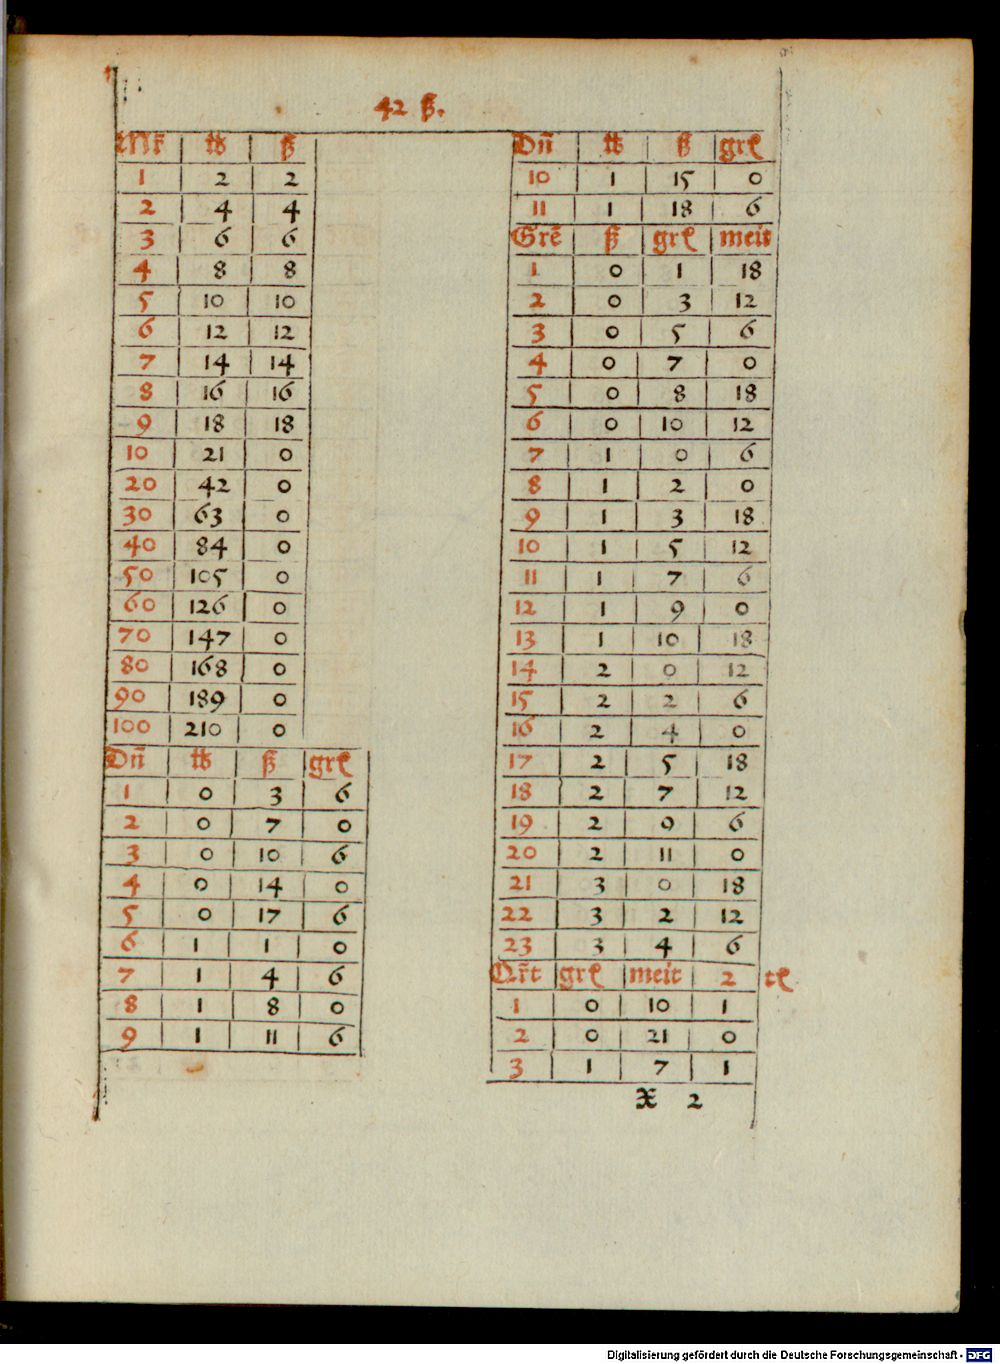 42 ß.
Mk̃ | ℔ | ß
1 | 2 | 2
2 | 4 | 4
3 | 6 | 6
4 | 8 | 8
5 | 10 | 10
6 | 12 | 12
7 | 14 | 14
8 | 16 | 16
9 | 18 | 18
10 | 21 | 0
20 | 42 | 0
30 | 63 | 0
40 | 84 | 0
50 | 105 | 0
60 | 126 | 0
70 | 147 | 0
80 | 168 | 0
90 | 189 | 0
100 | 210 | 0
Dñ | ℔ | ß | grꝭ
1 | 0 | 3 | 6
2 | 0 | 7 | 0
3 | 0 | 10 | 6
4 | 0 | 14 | 0
5 | 0 | 17 | 6
6 | 1 | 1 | 0
7 | 1 | 4 | 6
8 | 1 | 8 | 0
9 | 1 | 11 | 6
Dñ | ℔ | ß | grꝭ
10 | 1 | 15 | 0
11 | 1 | 18 | 6
Grẽ | ß | grꝭ | meit
1 | 0 | 1 | 18
2 | 0 | 3 | 12
3 | 0 | 5 | 6
4 | 0 | 7 | 0
5 | 0 | 8 | 18
6 | 0 | 10 | 12
7 | 1 | 0 | 6
8 | 1 | 2 | 0
9 | 1 | 3 | 18
10 | 1 | 5 | 12
11 | 1 | 7 | 6
12 | 1 | 9 | 0
13 | 1 | 10 | 18
14 | 2 | 0 | 12
15 | 2 | 2 | 6
16 | 2 | 4 | 0
17 | 2 | 5 | 18
18 | 2 | 7 | 12
19 | 2 | 9 | 6
20 | 2 | 11 | 0
21 | 3 | 0 | 18
22 | 3 | 2 | 12
23 | 3 | 4 | 6
Qr̃t | grꝭ | meit | 2 | tꝭ
1 | 0 | 10 | 1
2 | 0 | 21 | 0
3 | 1 | 7 | 1
X 2
Digitalisierung gefördert durch die Deutsche Forschungsgemeinschaft - DFG